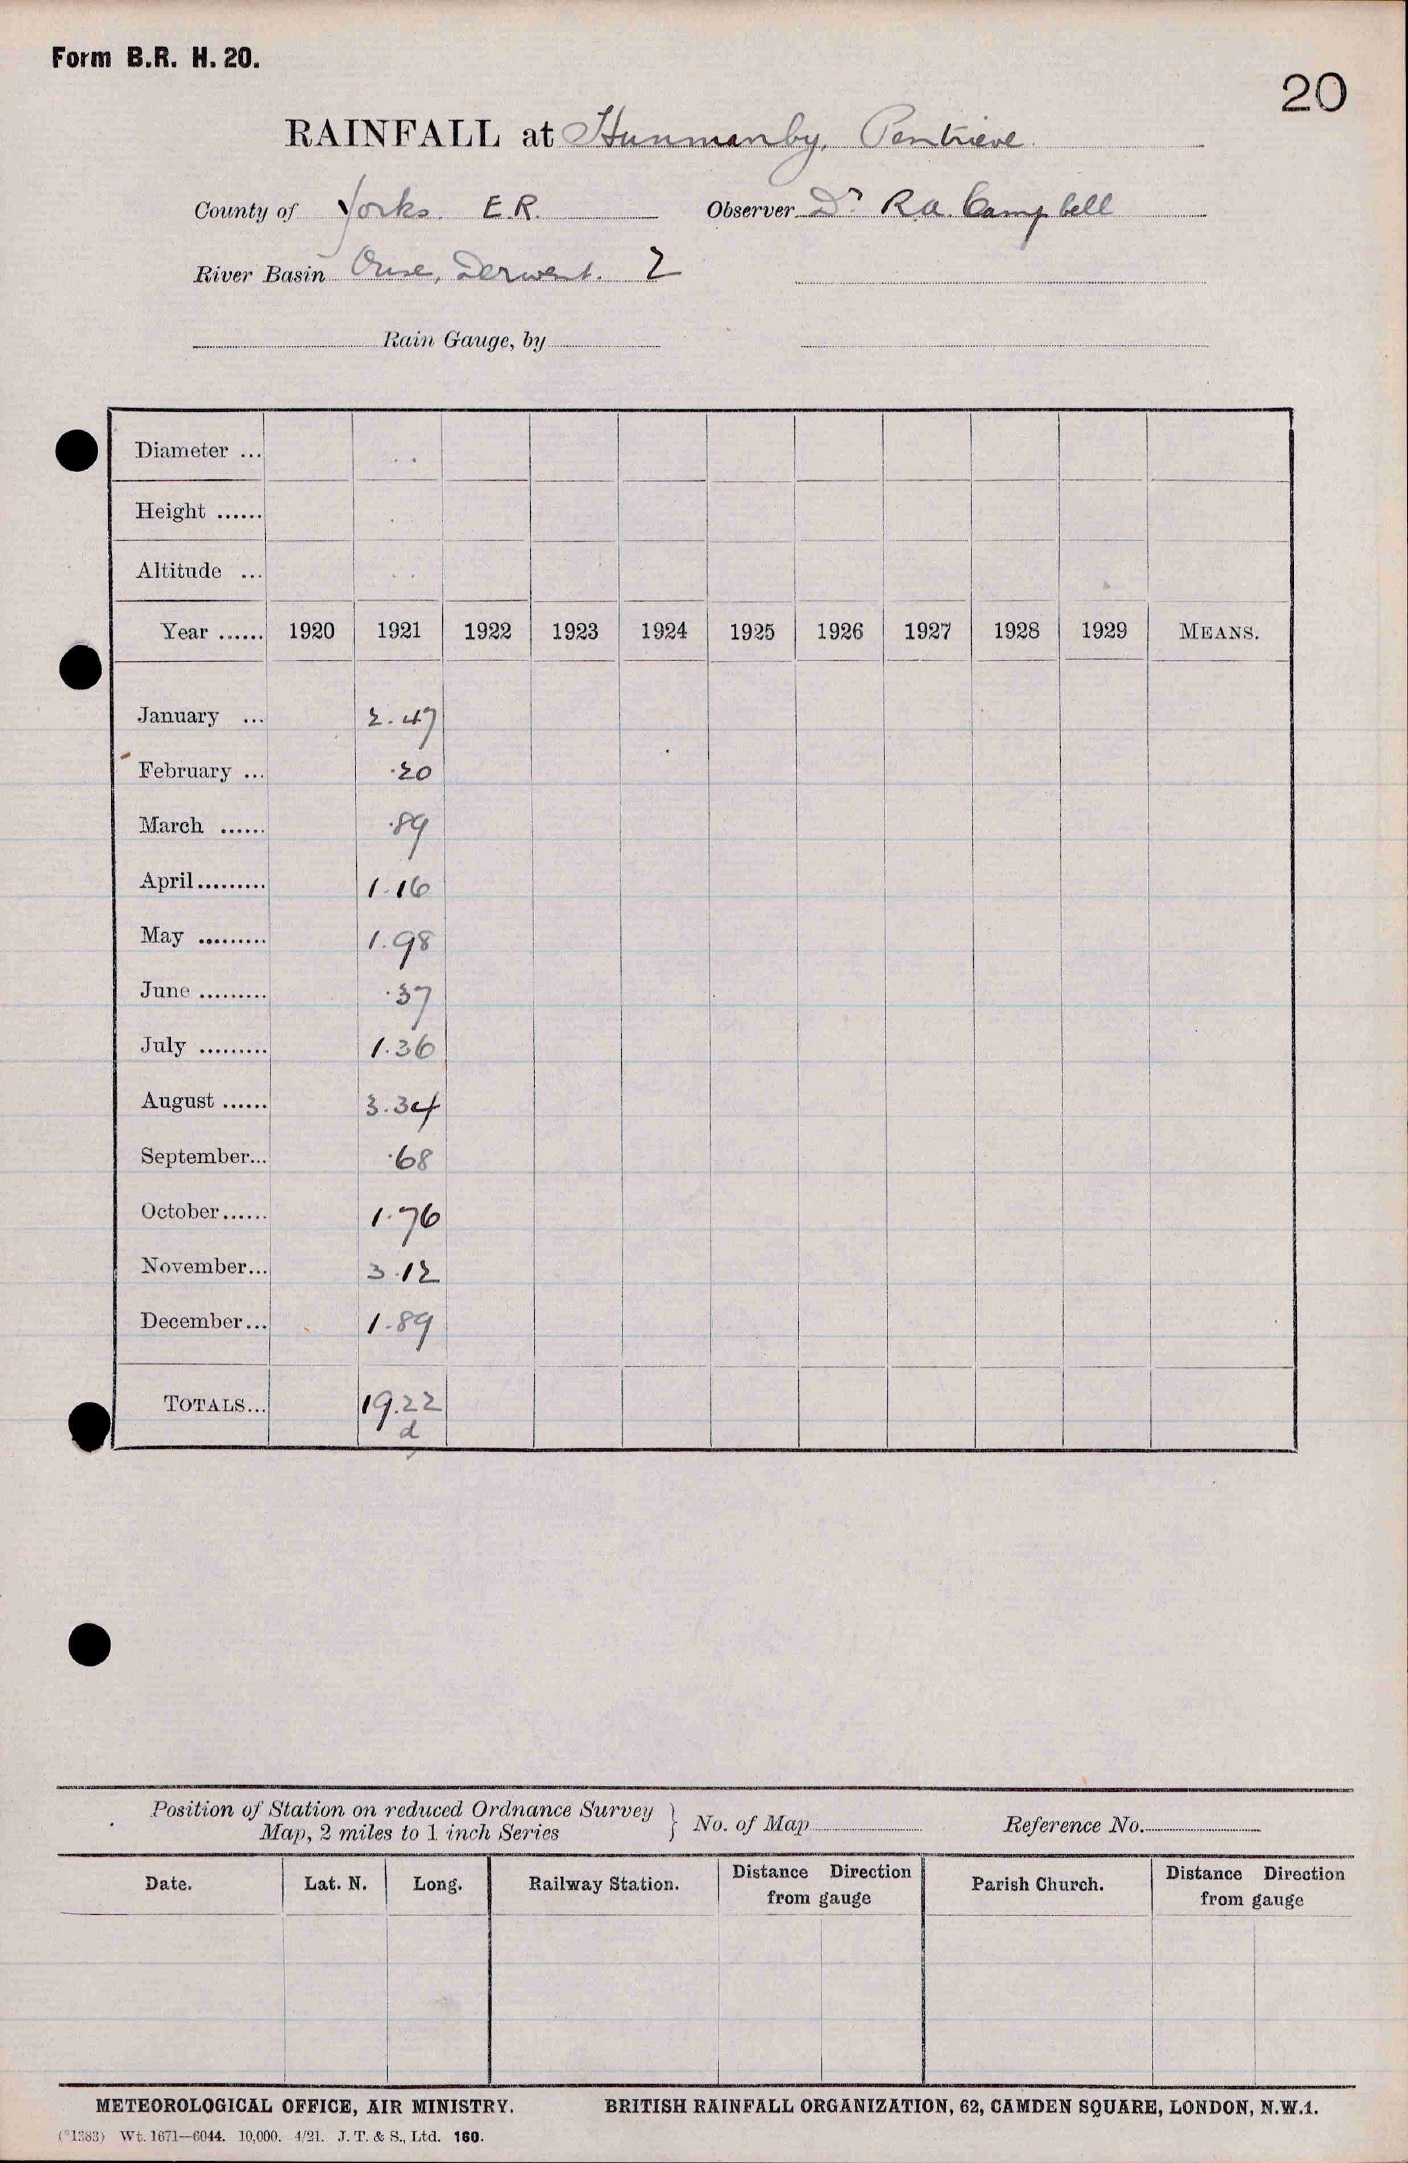 Form B.R. H. 20.
20
RAINFALL at Hunmanby, Pentrieve
County of Yorks. E.R. Observer Dr R.A. Campbell
River Basin Ouse, Derwent. 2
Rain Gauge, by
Diameter ...
Height ......
Altitude ...
Year ...... 1920 1921 1922 1923 1924 1925 1926 1927 1928 1929 MEANS.
January ... 2.47
February ... .20
March ...... .89
April......... 1.16
May ......... 1.98
June ......... .37
July ......... 1.36
August ...... 3.34
September... .68
October...... 1.76
November... 3.12
December... 1.89
TOTALS... 19.22
d
Position of Station on reduced Ordnance Survey
Map, 2 miles to 1 inch Series } No. of Map Reference No.
Date. Lat. N. Long. Railway Station. Distance Direction from gauge Parish Church. Distance Direction from gauge
METEOROLOGICAL OFFICE, AIR MINISTRY. BRITISH RAINFALL ORGANIZATION, 62, CAMDEN SQUARE, LONDON, N.W.1.
(*1383) Wt. 1671—6044. 10,000. 4/21. J. T. & S., Ltd. 160.